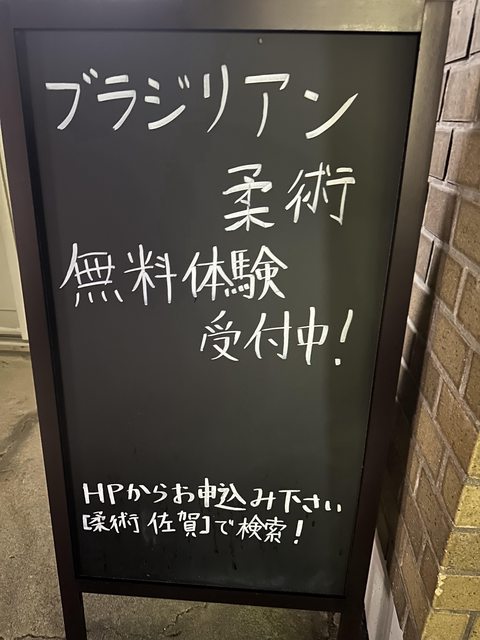 ブラジリアン
柔術
無料体験
受付中!
HPからお申込み下さい
[柔術 佐賀]で検索!